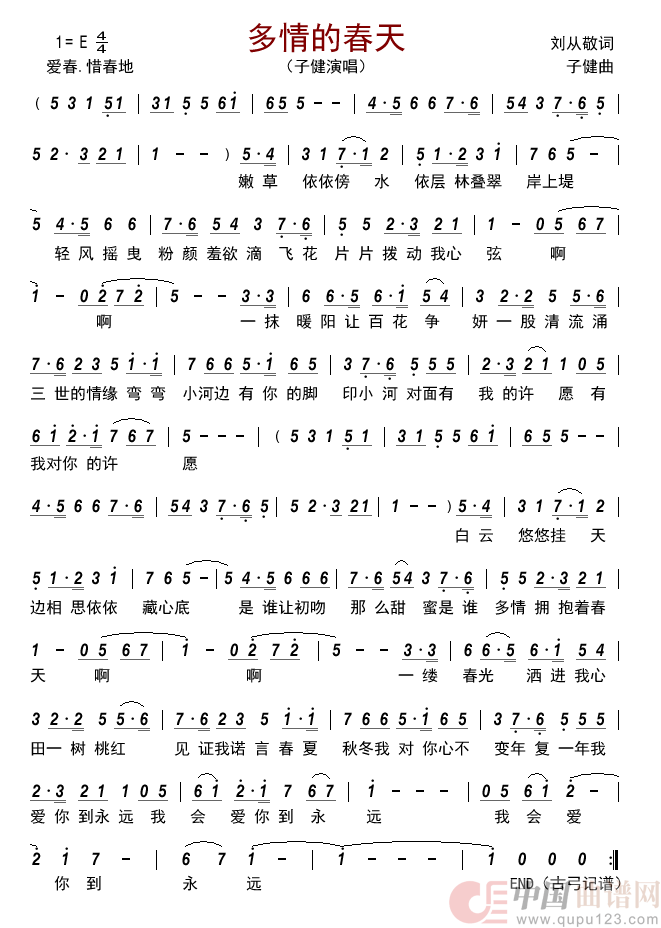 多情的春天
1= E 4/4
刘从敬词
爱春.惜春地
（子健演唱）
子健曲
( 5 3 1 51 | 31 5 5 61 | 65 5 - - | 4·5 6 6 7·6 | 54 3 7·6 5 |
5 2·3 21 | 1 - - ) 5·4 | 3 1 7·1 2 | 5 1·2 3 1 | 7 6 5 - |
嫩 草 依依傍 水 依层 林叠翠 岸上堤
5 4·5 6 6 | 7·6 54 3 7·6 | 5 5 2·3 21 | 1 - 05 67 |
轻 风 摇 曳 粉 颜 羞欲 滴 飞 花 片 片 拨 动 我心 弦 啊
1 - 02 72 | 5 - - 3·3 | 6 6·5 6·1 54 | 3 2 5 5·6 |
啊 一 抹 暖 阳 让 百 花 争 妍 一 股 清 流 涌
7·6 2 3 5 1·1 | 7·6 5 5·1 65 | 3 7·6 5 5 5 | 2·3 21 1 05 |
三 世的情缘 弯 弯 小河边 有 你 的脚 印小 河 对面有 我 的许 愿 有
61 2·1 7 67 | 5 - - - | ( 5 3 1 51 | 31 5 5 61 | 65 5 - - |
我对你 的许 愿
4·5 6 6 7·6 | 54 3 7·6 5 | 5 2·3 21 | 1 - - ) 5·4 | 3 1 7·1 2 |
白 云 悠悠挂 天
5 1·2 3 1 | 7 6 5 - | 54 5 6 6 6 | 7·6 54 3 7·6 | 5 5 2·3 21 |
边相 思依依 藏心底 是 谁让初吻 那 么甜 蜜是 谁 多情 拥 抱着春
1 - 05 67 | 1 - 02 72 | 5 - - 3·3 | 6 6·5 6·1 54 |
天 啊 啊 一 缕 春光 洒 进 我心
3 2·2 5 5·6 | 7·6 2 3 5 1·1 | 7·6 5 5·1 65 | 3 7·6 5 5 5 |
田一 树 桃红 见 证我诺 言 春 夏 秋冬我 对 你心不 变年 复 一年我
2·3 21 1 05 | 61 2·1 7 67 | 1 - - - | 05 61 2 - |
爱 你 到永 远 我 会 爱 你 到 永 远 我 会 爱
2 1 7 - | 6 7 1 - | 1 - - - | 1 0 0 0 :|
你 到 永 远 END（古弓记谱）
中国曲谱网
www.qupu123.com